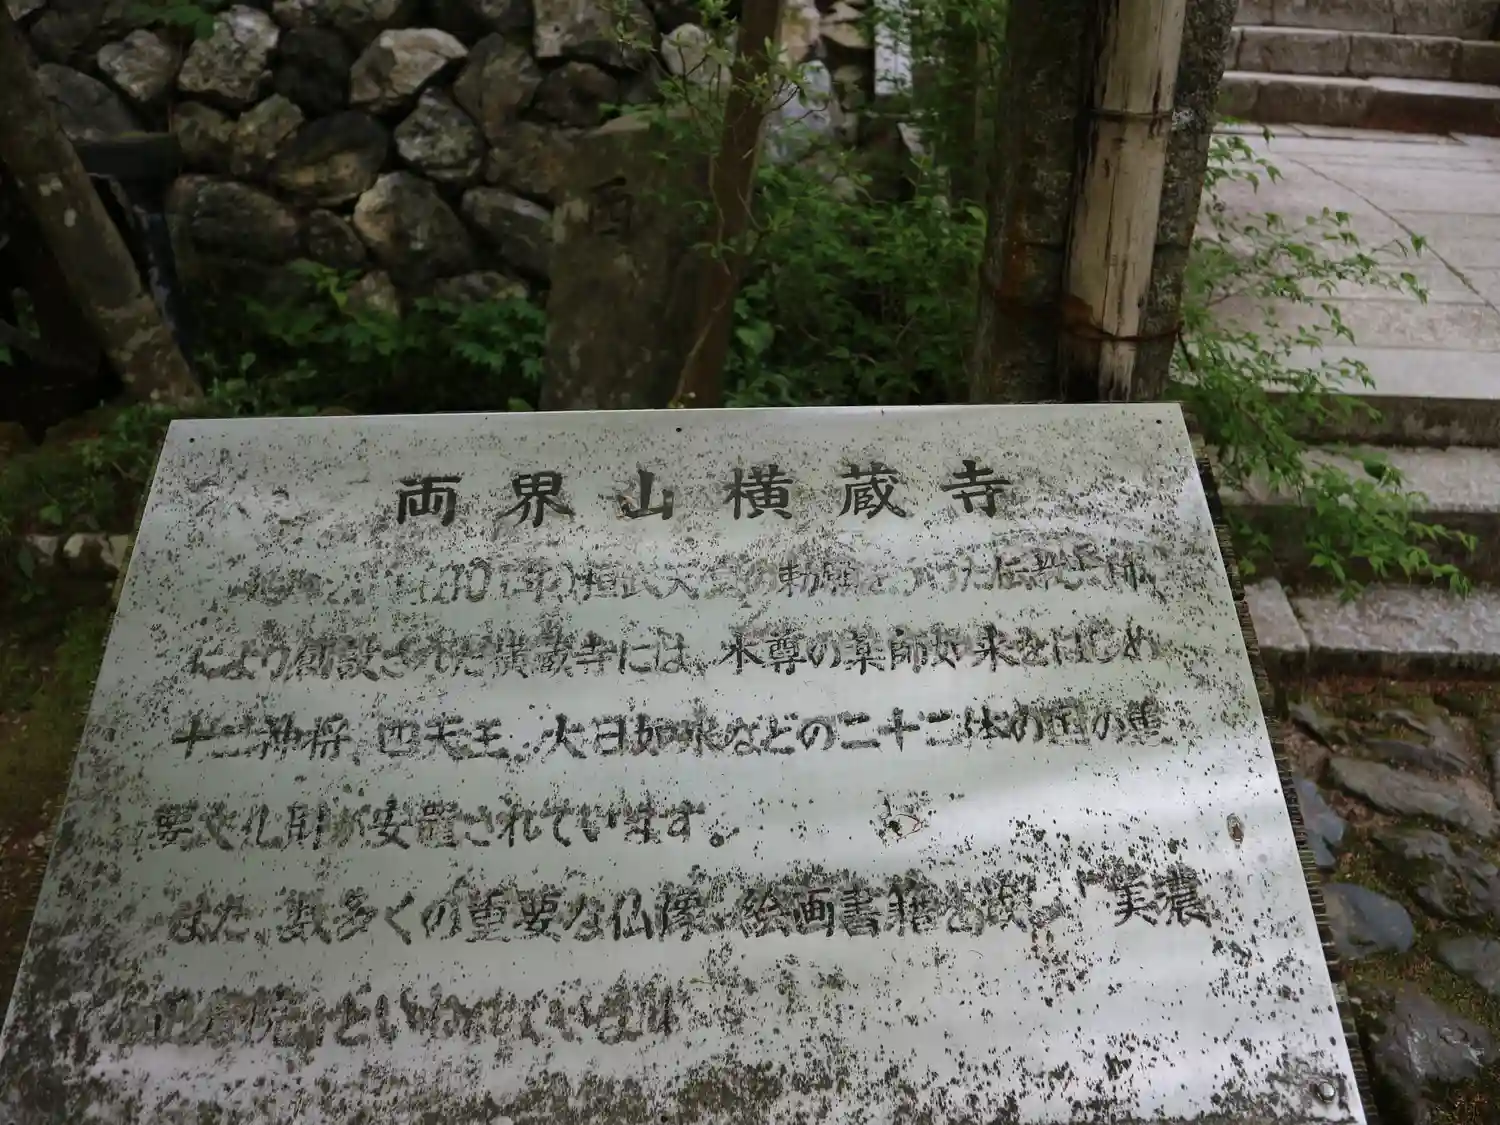 両界山横蔵寺
(801年)桓武天皇の勅願をうけた伝教大師
により創設された横蔵寺には、本尊の薬師如来をはじめ
十二神将、四天王、大日如来などの二十二体の国の重
要文化財が安置されています。
また、数多くの重要な仏像、絵画書籍を蔵し、「美濃
の正倉院」といわれています。